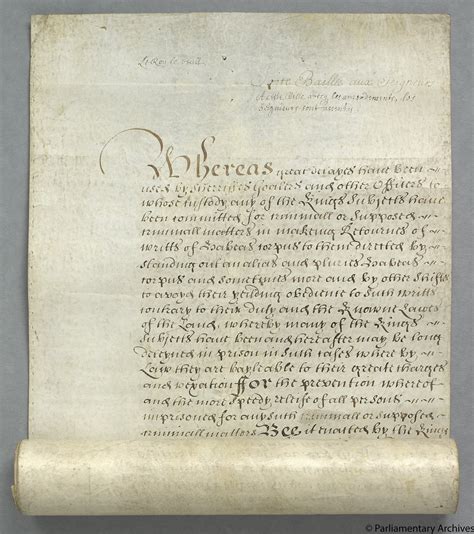 Le Roy le veult
Soit Baille aux Seigneurs
A cette Bille avecq les amendements, les
Seigneurs sont
Whereas great delayes have been
used by Sherriffes Goalers and other Officers to
whose custody any of the Kings Subjects have
been committed for criminall or supposed
criminall matters in making Retournes of
writts of Habeas Corpus to them directed by
standing out an alias and pluries Habeas
Corpus and sometymes more and by other shifts
to avoyd their yeilding obedience to such writts
contrary to their duty and the knowne Lawes
of the Land, whereby many of the Kings
Subjects have been and hereafter may be long
deteyned in prison in such cases where by
Law they are bayleable to their great charges
and vexation For the prevention whereof
and the more speedy releife of all persons
imprisoned for any such criminall or supposed
criminall matters Bee it enacted by the Kings
© Parliamentary Archives